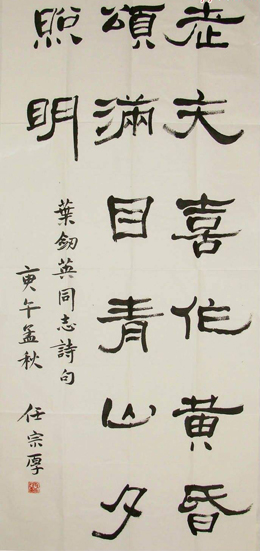 老夫喜作黄昏
頌滿目青山夕
照明
葉釼英同志詩句
庚午孟秋
任宗厚